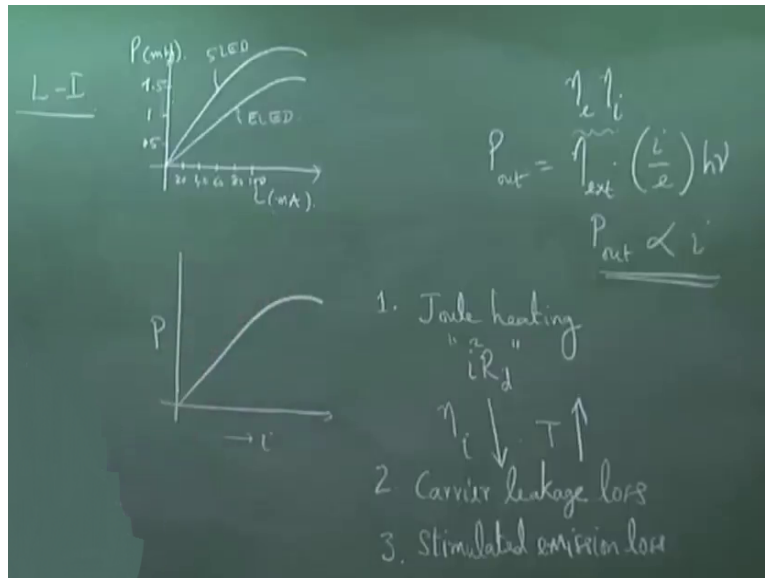 L-I
P(mW)
SLED
1.5
1
.5
ELED
20 40 60 80 100
i(mA).
η_e η_i
P_out = η_ext (i/e) hν
P_out ∝ i
P
→ i
1. Joule heating
" i²R_d "
η_i ↓ . T ↑
2 Carrier leakage loss
3. Stimulated emission loss